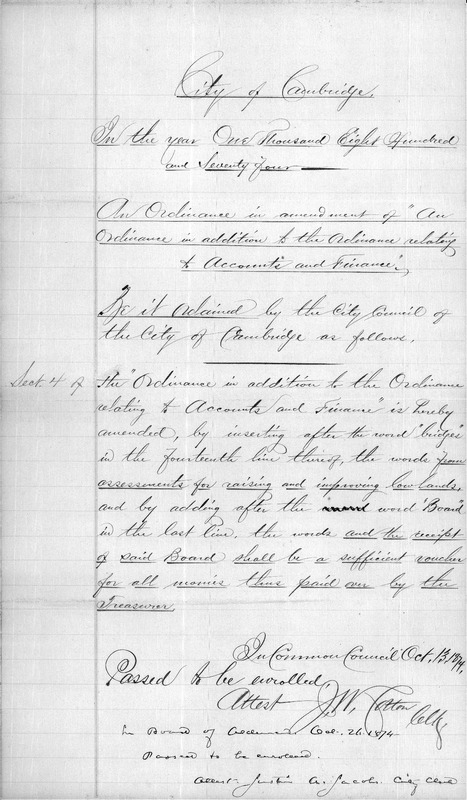 City of Cambridge.
In the year One Thousand Eight Hundred
and Seventy Four
An Ordinance in amendment of "An
Ordinance in addition to the Ordinance relating
to Accounts and Finance".
Be it ordained by the City Council of
the City of Cambridge as follows.
Sect. 4 of
The "Ordinance in addition to the Ordinance
relating to Accounts and Finance" is hereby
amended, by inserting after the word "bridges"
in the fourteenth line thereof, the words from
assessments for raising and improving low lands,
and by adding after the word "Board"
in the last line, the words and the receipt
of said Board shall be a sufficient voucher
for all monies thus paid over by the
Treasurer.
In Common Council Oct. 13, 1874.
Passed to be enrolled
Attest J. W. Cotton Clk
In Board of Aldermen Oct. 26. 1874
Passed to be enrolled.
Attest Justin A. Jacobs. City Clerk